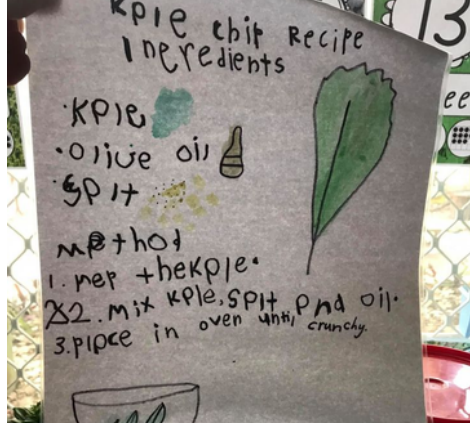 kple chip Recipe
Ingredients
·kple
·olive oil
·Splt
method
1. rep the kple.
2. mix kple, splt pnd oil.
3. plpce in oven until crunchy.
13
ee